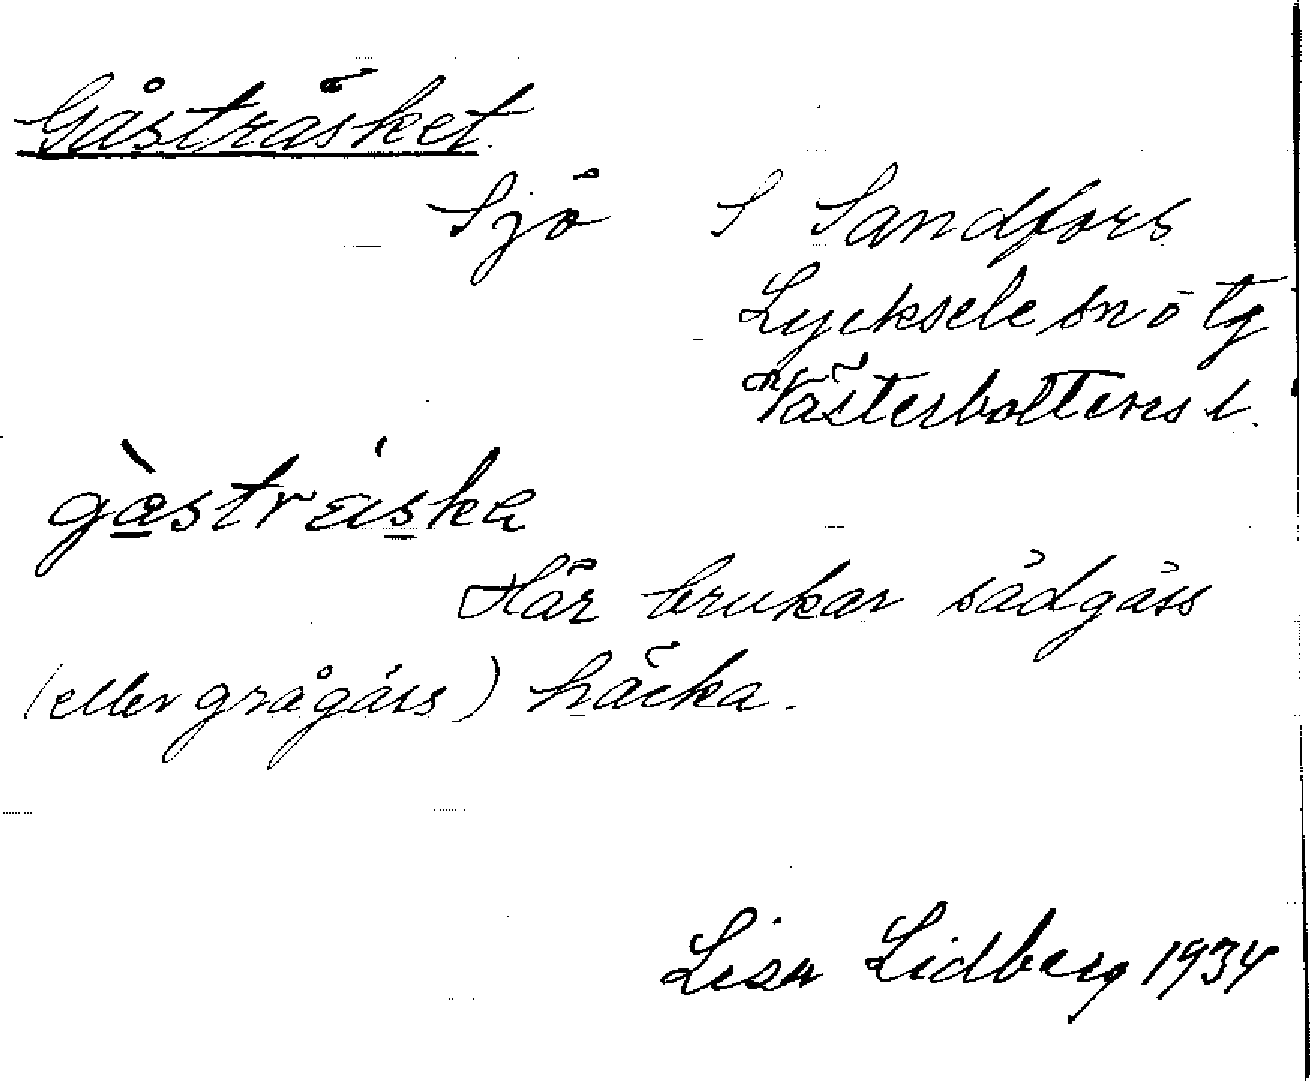 Gåsträsket.
Sjö S Sandfors
Lycksele sn o tg
Västerbottens l.
gàstráska
Här brukar sädgåss
(eller grågåss) häcka.
Lisa Lidberg 1934